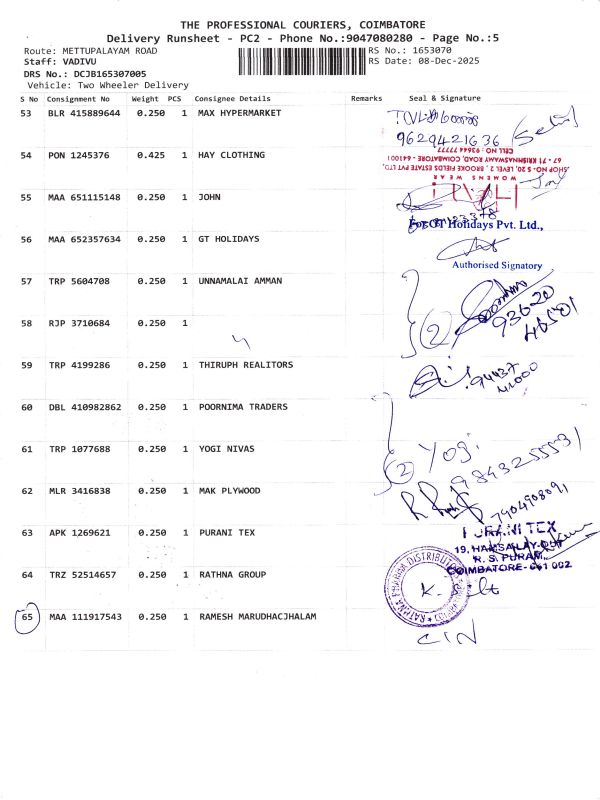 THE PROFESSIONAL COURIERS, COIMBATORE
Delivery Runsheet - PC2 - Phone No.:9047080280 - Page No.:5
Route: METTUPALAYAM ROAD RS No.: 1653070
Staff: VADIVU RS Date: 08-Dec-2025
DRS No.: DCJB165307005
Vehicle: Two Wheeler Delivery
S No Consignment No Weight PCS Consignee Details Remarks Seal & Signature
53 BLR 415889644 0.250 1 MAX HYPERMARKET
9629421636
54 PON 1245376 0.425 1 HAY CLOTHING
CELL NO : 9364477777
67 - 71 KRISHNASWAMY ROAD, COIMBATORE - 641001
SHOP NO- S 20, LEVEL 2, BROOKE FIELDS PVT ESTATE PVT LTD,
WOMENS WEAR
55 MAA 651115148 0.250 1 JOHN
For GT Holidays Pvt. Ltd.,
56 MAA 652357634 0.250 1 GT HOLIDAYS
Authorised Signatory
57 TRP 5604708 0.250 1 UNNAMALAI AMMAN
58 RJP 3710684 0.250 1
2
93620
46501
59 TRP 4199286 0.250 1 THIRUPH REALITORS
94437
60 DBL 410982862 0.250 1 POORNIMA TRADERS
61 TRP 1077688 0.250 1 YOGI NIVAS
2 Yogi
9843255531
62 MLR 3416838 0.250 1 MAK PLYWOOD
7904908091
63 APK 1269621 0.250 1 PURANI TEX
PURANI TEX
R. S. PURAM,
COIMBATORE- 641 002
64 TRZ 52514657 0.250 1 RATHNA GROUP
RATHNA PHARMA DISTRIBUTORS
65 MAA 111917543 0.250 1 RAMESH MARUDHACJHALAM